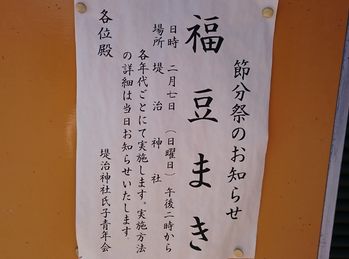 節分祭のお知らせ
福豆まき
日時 二月七日 (日曜日) 午後二時から
場所 堤治神社
各年代ごとにて実施します。実施方法
の詳細は当日お知らせいたします.
堤治神社氏子青年会
各位殿